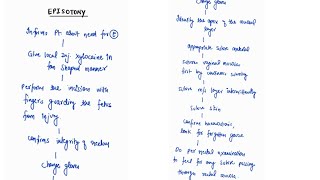 EPISOTOMY
Informs Pt about need for Ⓔ
Give local inj. xylocaine in
fan shaped manner
Perform the incision with
fingers guarding the fetus
from injury
Confirms integrity of rectum
Change gloves
Change gloves
Identify the apex of the mucosal
layer
Appropriate suture material
Suture vaginal mucosa
first by continuous suturing
Suture m/s layer intermittently
Suture skin
Confirm haemostasis,
look for forgotten gauze
Do per rectal examination
to feel for any suture passing
through rectal mucosa